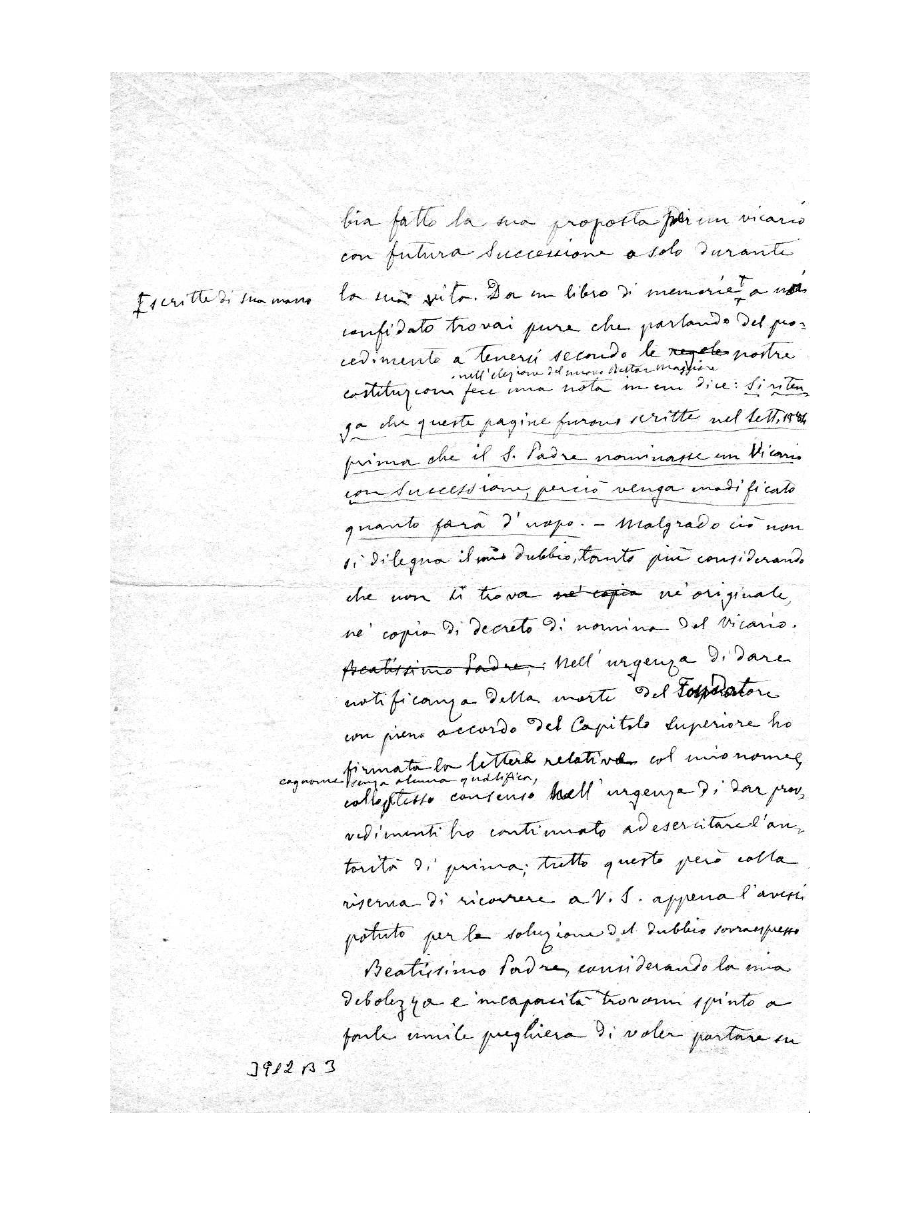 bia fatto la sua proposta per un vicario
con futura successione o solo durante
Escritte di sua mano
la sua vita. Da un libro di memorie a noi
confidato trovai pure che parlando del pro-
cedimento a tenersi secondo le regole nostre
nell'elezione del nuovo Rettor Maggiore
costituzioni fece una nota in cui dice: Si riten
ga che queste pagine furono scritte nel Sett. 1884
prima che il S. Padre nominasse un Vicario
con successione, perciò venga modificato
quanto farà d'uopo. – Malgrado ciò non
si dilegua il mio dubbio, tanto più considerando
che non si trova nè copia nè originale,
nè copia di decreto di nomina del Vicario.
Beatissimo Padre, Nell'urgenza di dare
notificanza della morte del Fondatore
con pieno accordo del Capitolo Superiore ho
firmata la lettera relativa col mio nome e
cognome senza alcuna qualifica,
collo stesso consenso nell'urgenza di dar prov-
vedimenti ho continuato ad esercitare l'au-
torità di prima; tutto questo però colla
riserva di ricorrere a V. S. appena l'avessi
potuto per la soluzione del dubbio sovraespresso
Beatissimo Padre, considerando la mia
debolezza e incapacità trovomi spinto a
farle umile preghiera di voler portare su
3912 B 3